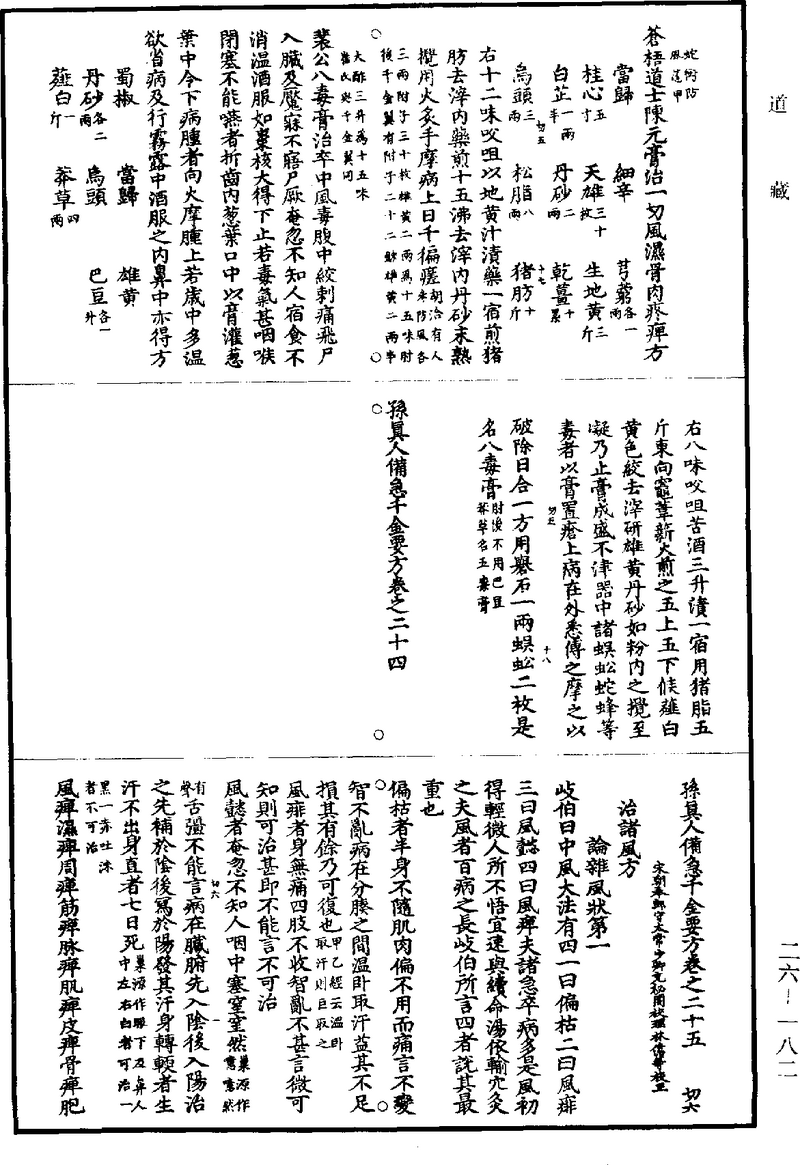 道藏
蛇銜防
風蓤甲
蒼梧道士陳元膏治一切風濕骨肉疼痺方
當歸　細辛　芎藭各一兩
桂心五寸　天雄三十枚　生地黃三斤
白芷一兩半　丹砂二兩　乾薑十累
切五　十七
烏頭三兩　松脂八兩　猪肪十斤
右十二味㕮咀以地黃汁漬藥一宿煎猪
肪去滓内藥煎十五沸去滓内丹砂末熟
攪用火炙手摩病上日千徧瘥胡治有人參防風各
三兩附子三十枚雄黃二兩為十五味肘
後千金翼有附子二十二銖雄黃二兩半
大酢三升為十五味
崔氏與千金翼同
裴公八毒膏治卒中風毒腹中絞刺痛飛尸
入臟及魘寐不寤尸厥奄忽不知人宿食不
消溫酒服如棗核大得下止若毒氣甚咽喉
閉塞不能嚥者折齒内葱葉口中以膏灌葱
葉中令下病腫者向火摩腫上若歲中多溫
欲省病及行霧露中酒服之内鼻中亦得方
蜀椒　當歸　雄黃
丹砂各二兩　烏頭　巴豆各一升
薤白一斤　莽草四兩
右八味㕮咀苦酒三升漬一宿用猪脂五
斤東向竈葦薪火煎之五上五下候薤白
黃色絞去滓研雄黃丹砂如粉内之攪至
凝乃止膏成盛不津器中諸蜈蚣蛇蜂等
毒者以膏置瘡上病在外悉傅之摩之以
切五　十八
破除日合一方用礜石一兩蜈蚣二枚是
名八毒膏肘後不用巴豆莽草名五毒膏
孫真人備急千金要方卷之二十四
孫真人備急千金要方卷之二十五　切六
宋朝奉郎守太常少卿充秘閣校理林億等校正
治諸風方
論雜風狀第一
岐伯曰中風大法有四一曰偏枯二曰風痱
三曰風懿四曰風痺夫諸急卒病多是風初
得輕微人所不悟宜速與續命湯依輸穴灸
之夫風者百病之長岐伯所言四者說其最
重也
偏枯者半身不隨肌肉偏不用而痛言不變
智不亂病在分腠之間溫卧取汗益其不足
損其有餘乃可復也甲乙經云溫卧取汗則巨取之
風痱者身無痛四肢不收智亂不甚言微可
知則可治甚即不能言不可治
風懿者奄忽不知人咽中塞窒窒然巢源作噫噫然
切六　一
有聲舌彊不能言病在臟腑先入陰後入陽治
之先補於陰後寫於陽發其汗身轉軟者生
汗不出身直者七日死巢源作眼下及鼻人中左右白者可治一
黑一赤吐沫
者不可治
風痺濕痺周痺筋痺脉痺肌痺皮痺骨痺胞
二六—一八二